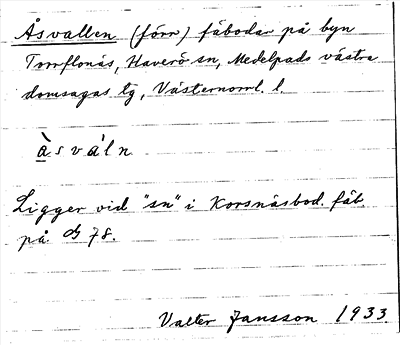 Åsvallen (förr) fäbodar på byn
Torrflonäs, Haverö sn, Medelpads västra
domsagas tg, Västernorrl. l.
à s v á l n
Ligger vid "sn" i Korsnäsbod. fäb.
på 78.
Valter Jansson 1933.